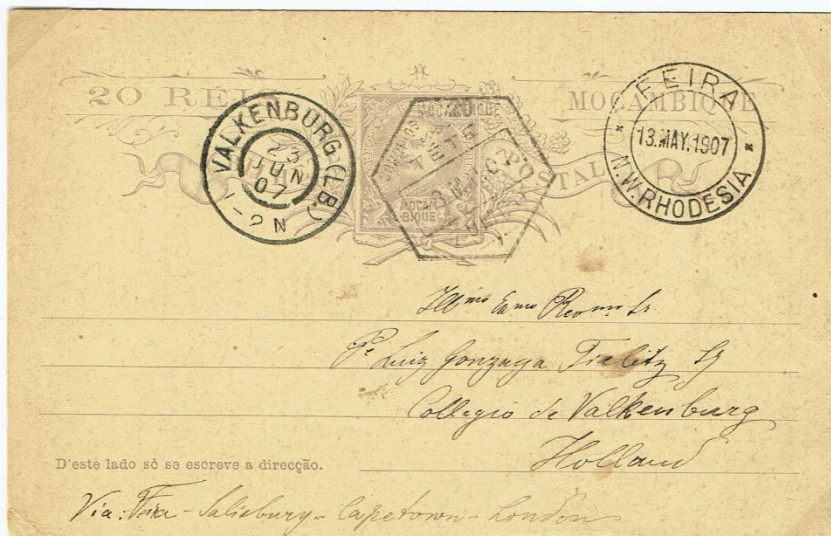 20 REIS
MOÇAMBIQUE
POSTAL
MOÇAM
BIQUE
VALKENBURG (L.B.)
23
JUN
07
1-2N
MOÇAMBIQUE
FEIRA
13.MAY.1907
N.W.RHODESIA
Illmo Exmo Revmo Sr.
Pe Luiz Gonzaga Fielitz SJ
Collegio de Valkenburg
Holland
D'este lado só se escreve a direcção.
Via: Feira - Salisbury - Capetown - London